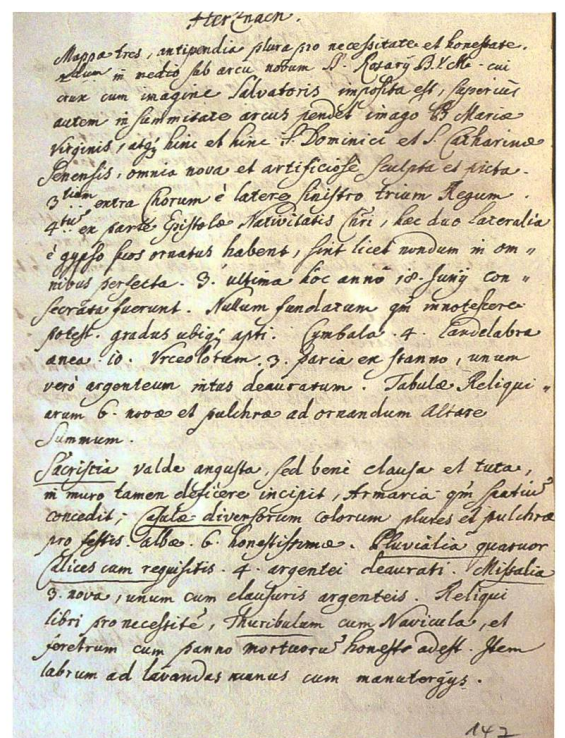 Herznach.
Mappa tres, antipendia plura pro necessitate et honestate.
in medio sub arcu novum S. Rosarij B.V. cui
crux cum imagine Salvatoris imposita est, superius
autem in summitate arcus pendet imago B Mariæ
Virginis, atq3 hinc et hinc S. Dominici et S. Catharinæ
Senensis, omnia nova et artificiosè sculpta et picta.
3tium extra Chorum è latere sinistro trium Regum.
4tum ex parte Epistolæ Nativitatis Chri, hæc duo lateralia
è gypso suos ornatus habent, sint licet nondum in om„
nibus perfecta. 3. ultima hoc anno 18. Junij con„
secrata fuerunt. Nullum fundatum qm innotescere
potest. gradus ubiq3 apti. Cymbala 4. Candelabra
ænea 10. Urceolorum 3. paria ex stanno, unum
verò argenteum intus deauratum. Tabulæ Reliqui„
arum 6. novæ et pulchræ ad ornandum Altare
Summum.
Sacristia valde angusta, sed benè clausa et tuta,
in muro tamen deficere incipit, Armaria qm spatiū
concedit; Casulæ diversorum colorum plures et pulchræ
pro festis. albæ 6. honestissimæ. Pluvialia quatuor
Calices cum requisitis 4. argentei deaurati. Missalia
3. nova, unum cum clausuris argenteis. Reliqui
libri pro necessitē, Thuribulum cum Navicula, et
feretrum cum panno mortuorū honestè adest. Item
labrum ad lavandas manus cum manutergijs.
147